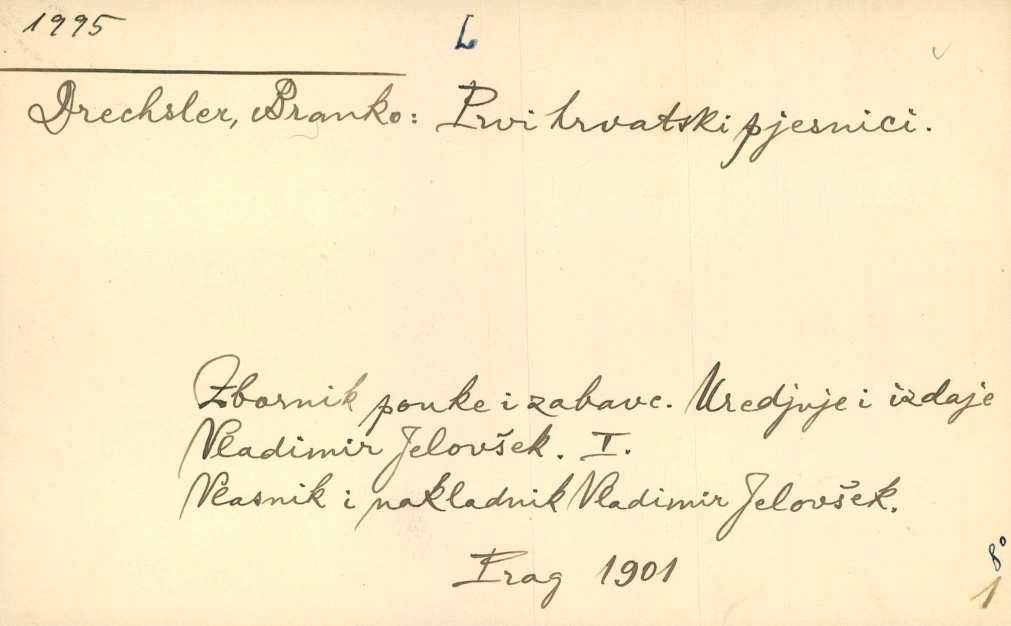 1995
L
Drechsler, Branko: Prvi hrvatski pjesnici.
Zbornik pouke i zabave. Uredjuje i izdaje
Vladimir Jelovšek. I.
Vlasnik i nakladnik Vladimir Jelovšek.
Prag 1901
8°
1